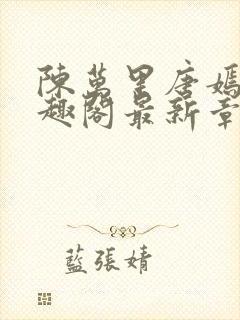 陳萬里唐嫣
趣閣最新章
藍張婧